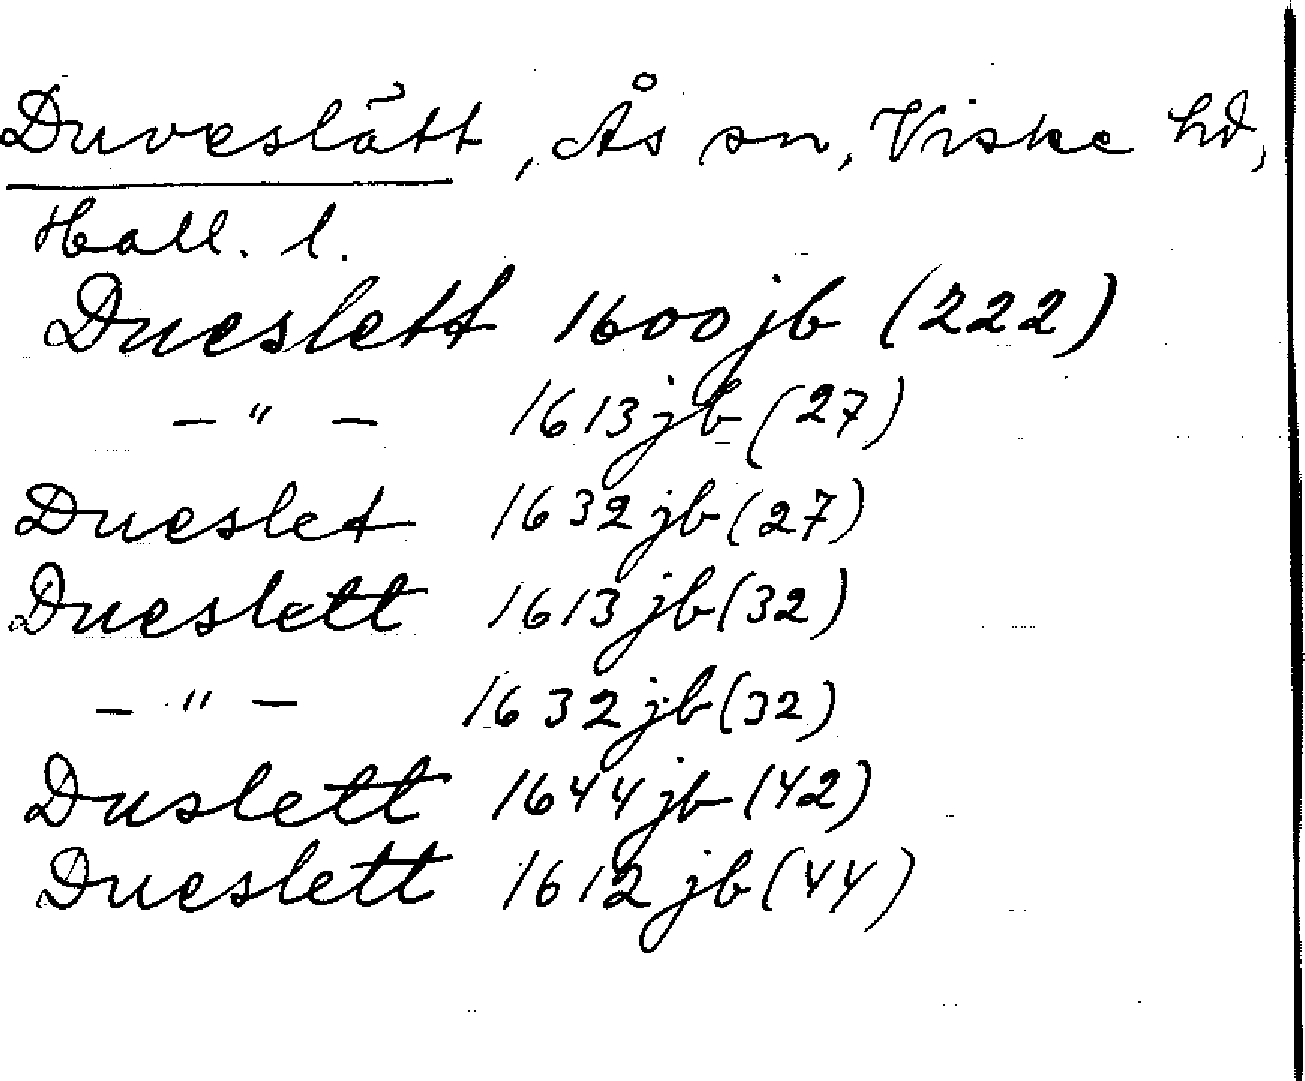 Duveslätt, Ås sn, Viske hd,
Hall. l.
Dueslett 1600 jb (222)
— " — 1613 jb (27)
Dueslet 1632 jb (27)
Dueslett 1613 jb (32)
— " — 1632 jb (32)
Duslett 1644 jb (42)
Dueslett 1612 jb (44)